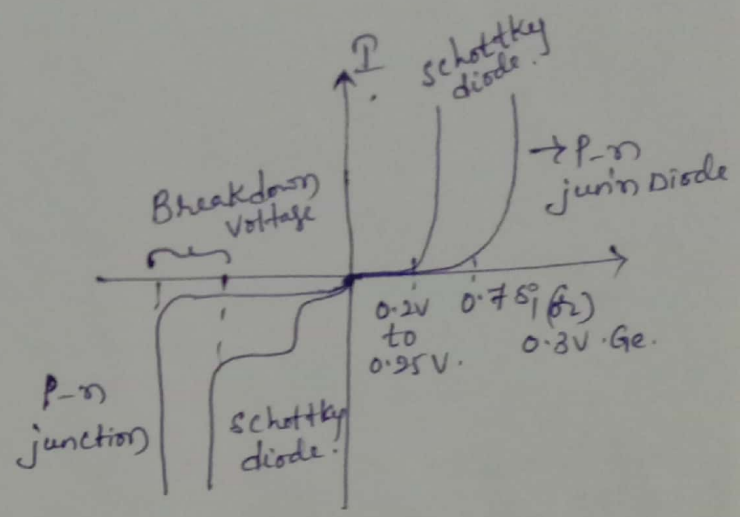 I
Schottky
diode.
→ P-n
jun'n Diode
Breakdown
Voltage
0.2V
to
0.25V.
0.7 Si (or)
0.3V.Ge.
P-n
junction
Schottky
diode.